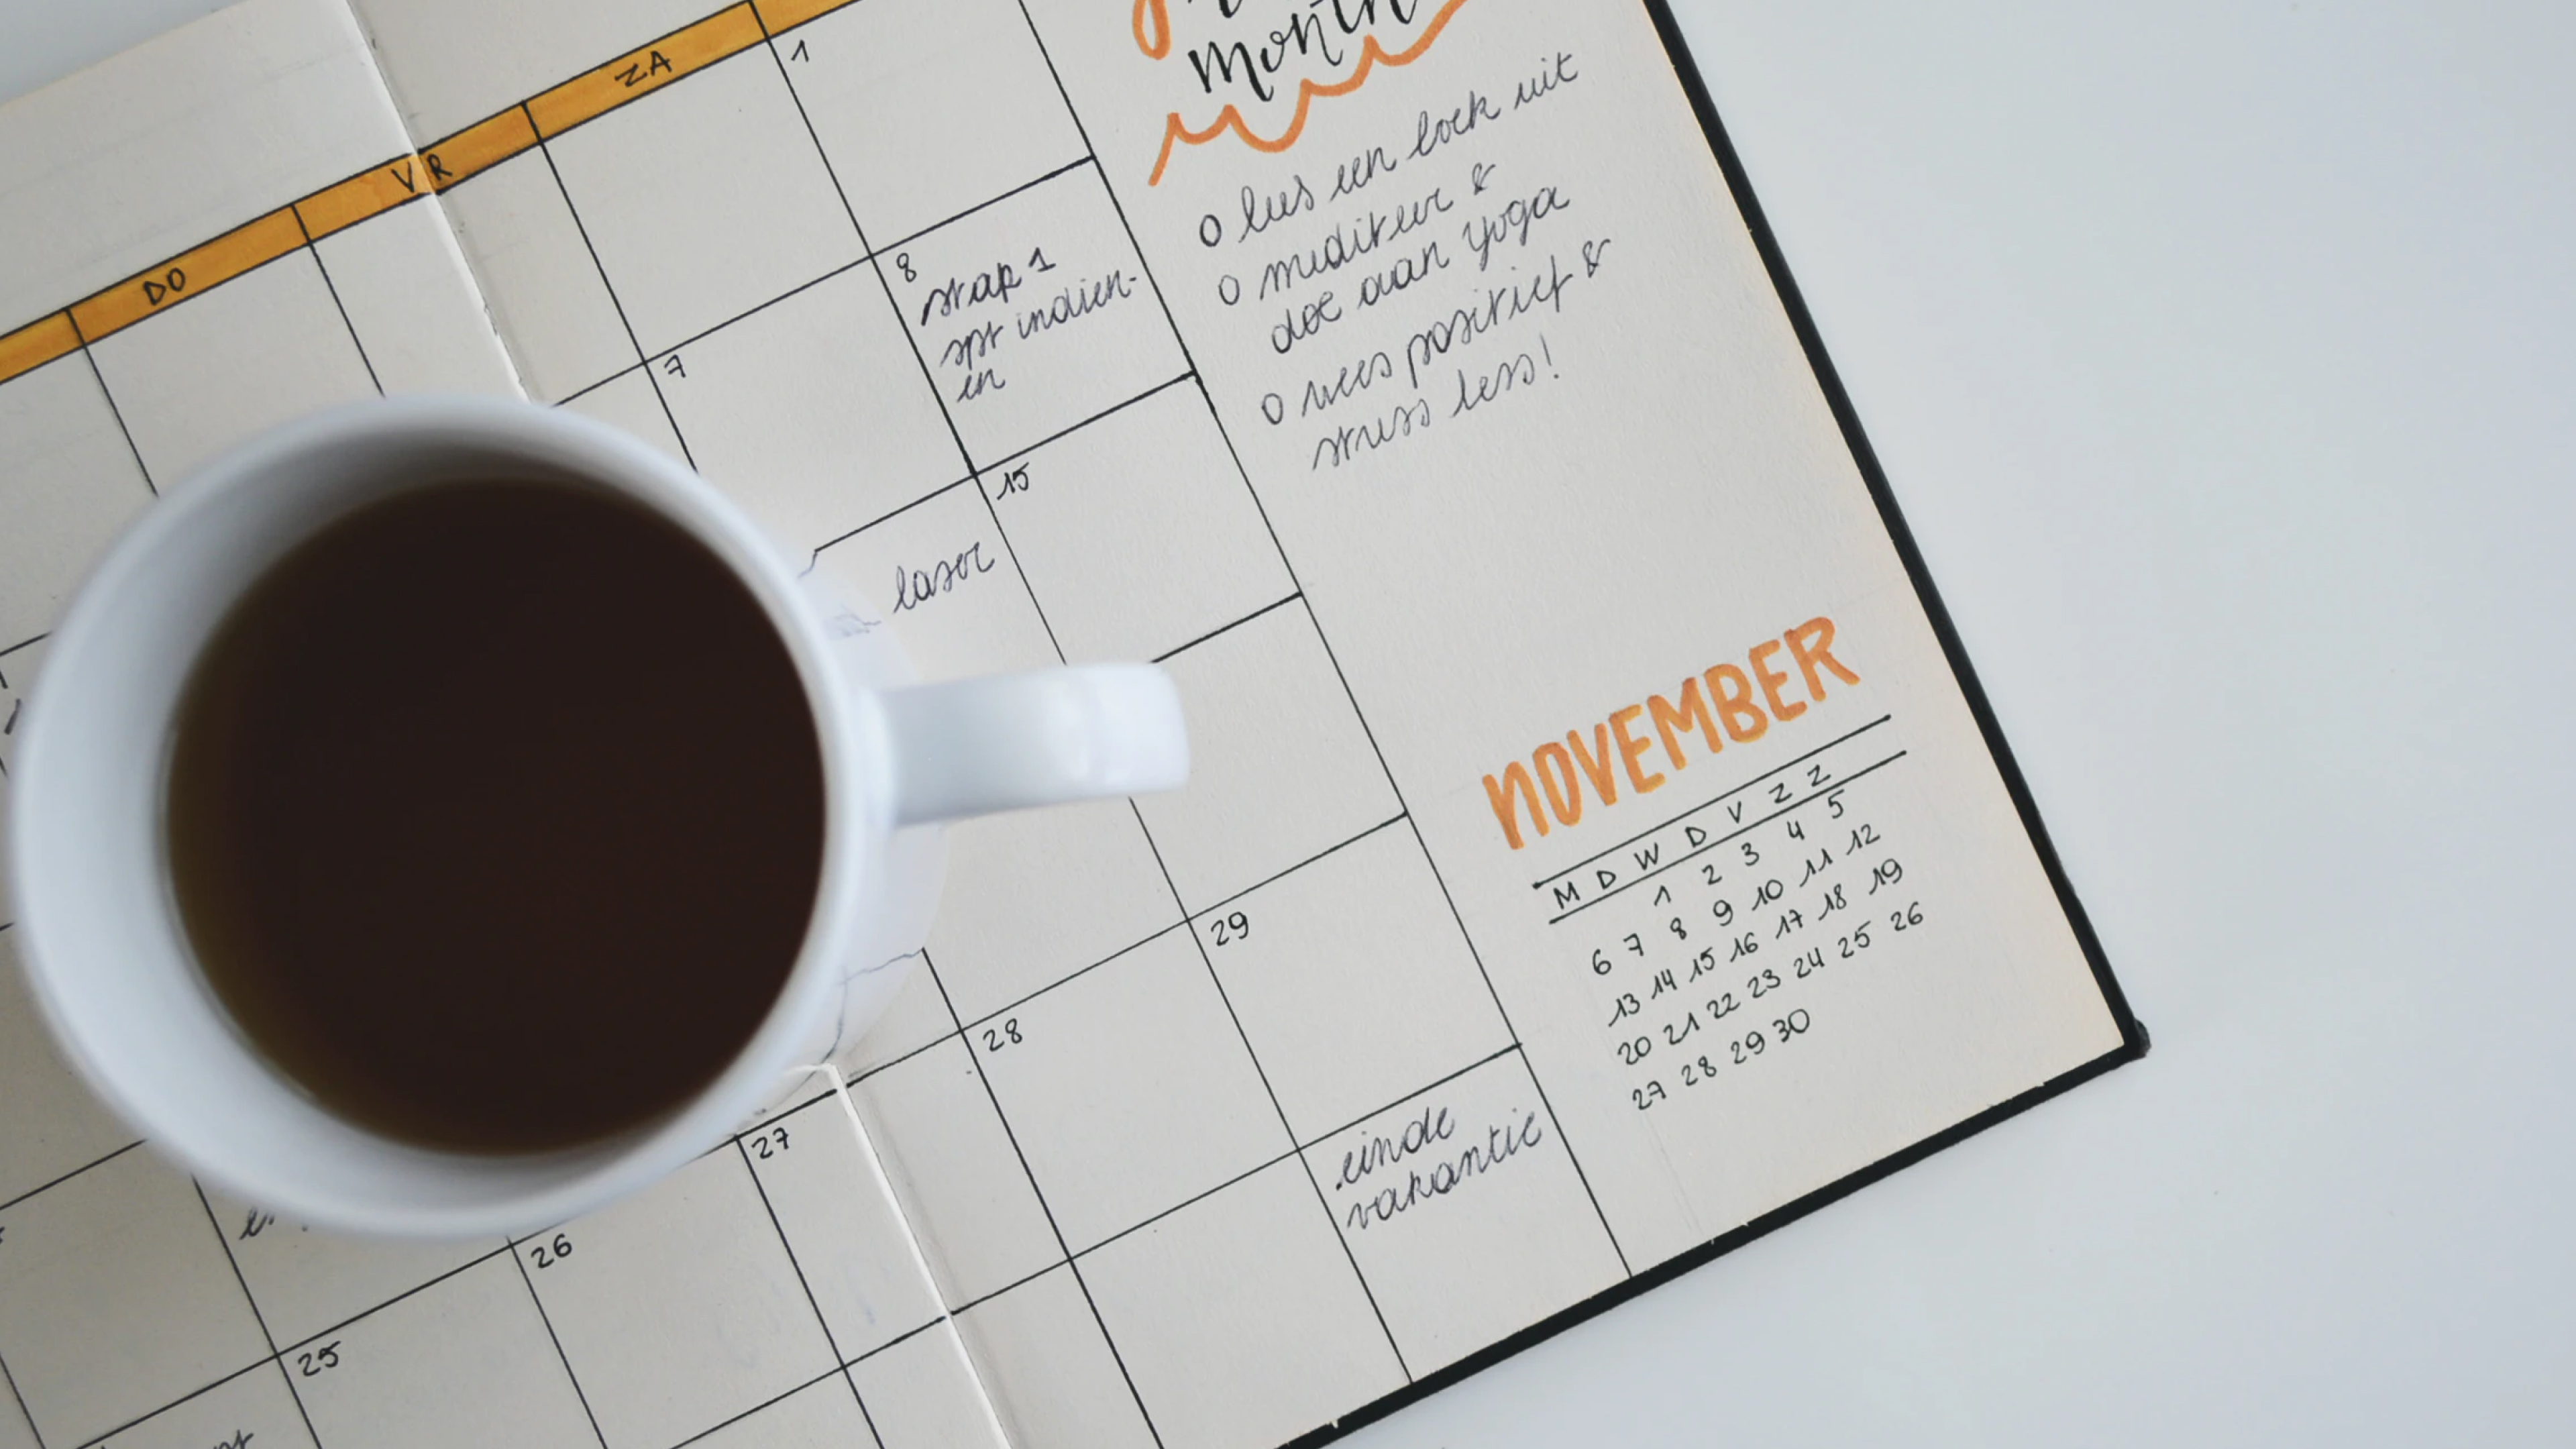 DO VR ZA
1
7
8
stap 1
spt indien-
en
laser
15
25
26
27
28
29
einde
vakantie
month
o lees een boek uit
o mediteer &
doe aan yoga
o wees positief &
stress less!
NOVEMBER
M D W D V Z Z
1 2 3 4 5
6 7 8 9 10 11 12
13 14 15 16 17 18 19
20 21 22 23 24 25 26
27 28 29 30